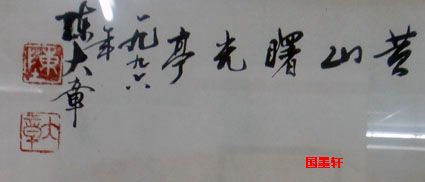 黄山曙光亭
一九九六
年
陈大章
陳
大章
国墨轩